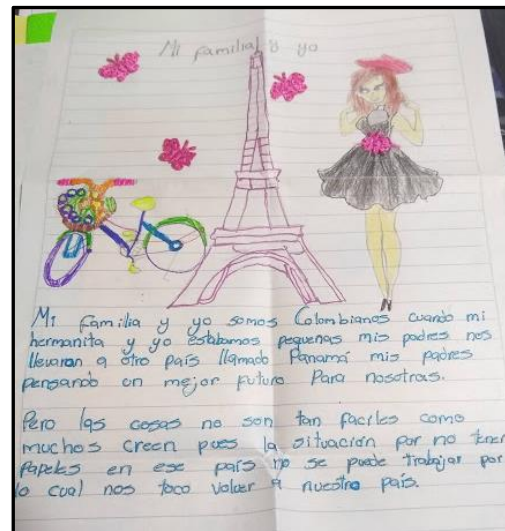 Mi familia y yo
Mi familia y yo somos Colombianos cuando mi
hermanita y yo estabamos pequeñas mis padres nos
llevaron a otro país llamado Panamá mis padres
pensando en mejor futuro Para nosotras.
Pero las cosas no son tan faciles como
muchos creen pues la situación por no tener
Papeles en ese país no se puede trabajar por
lo cual nos toco volver a nuestro país.